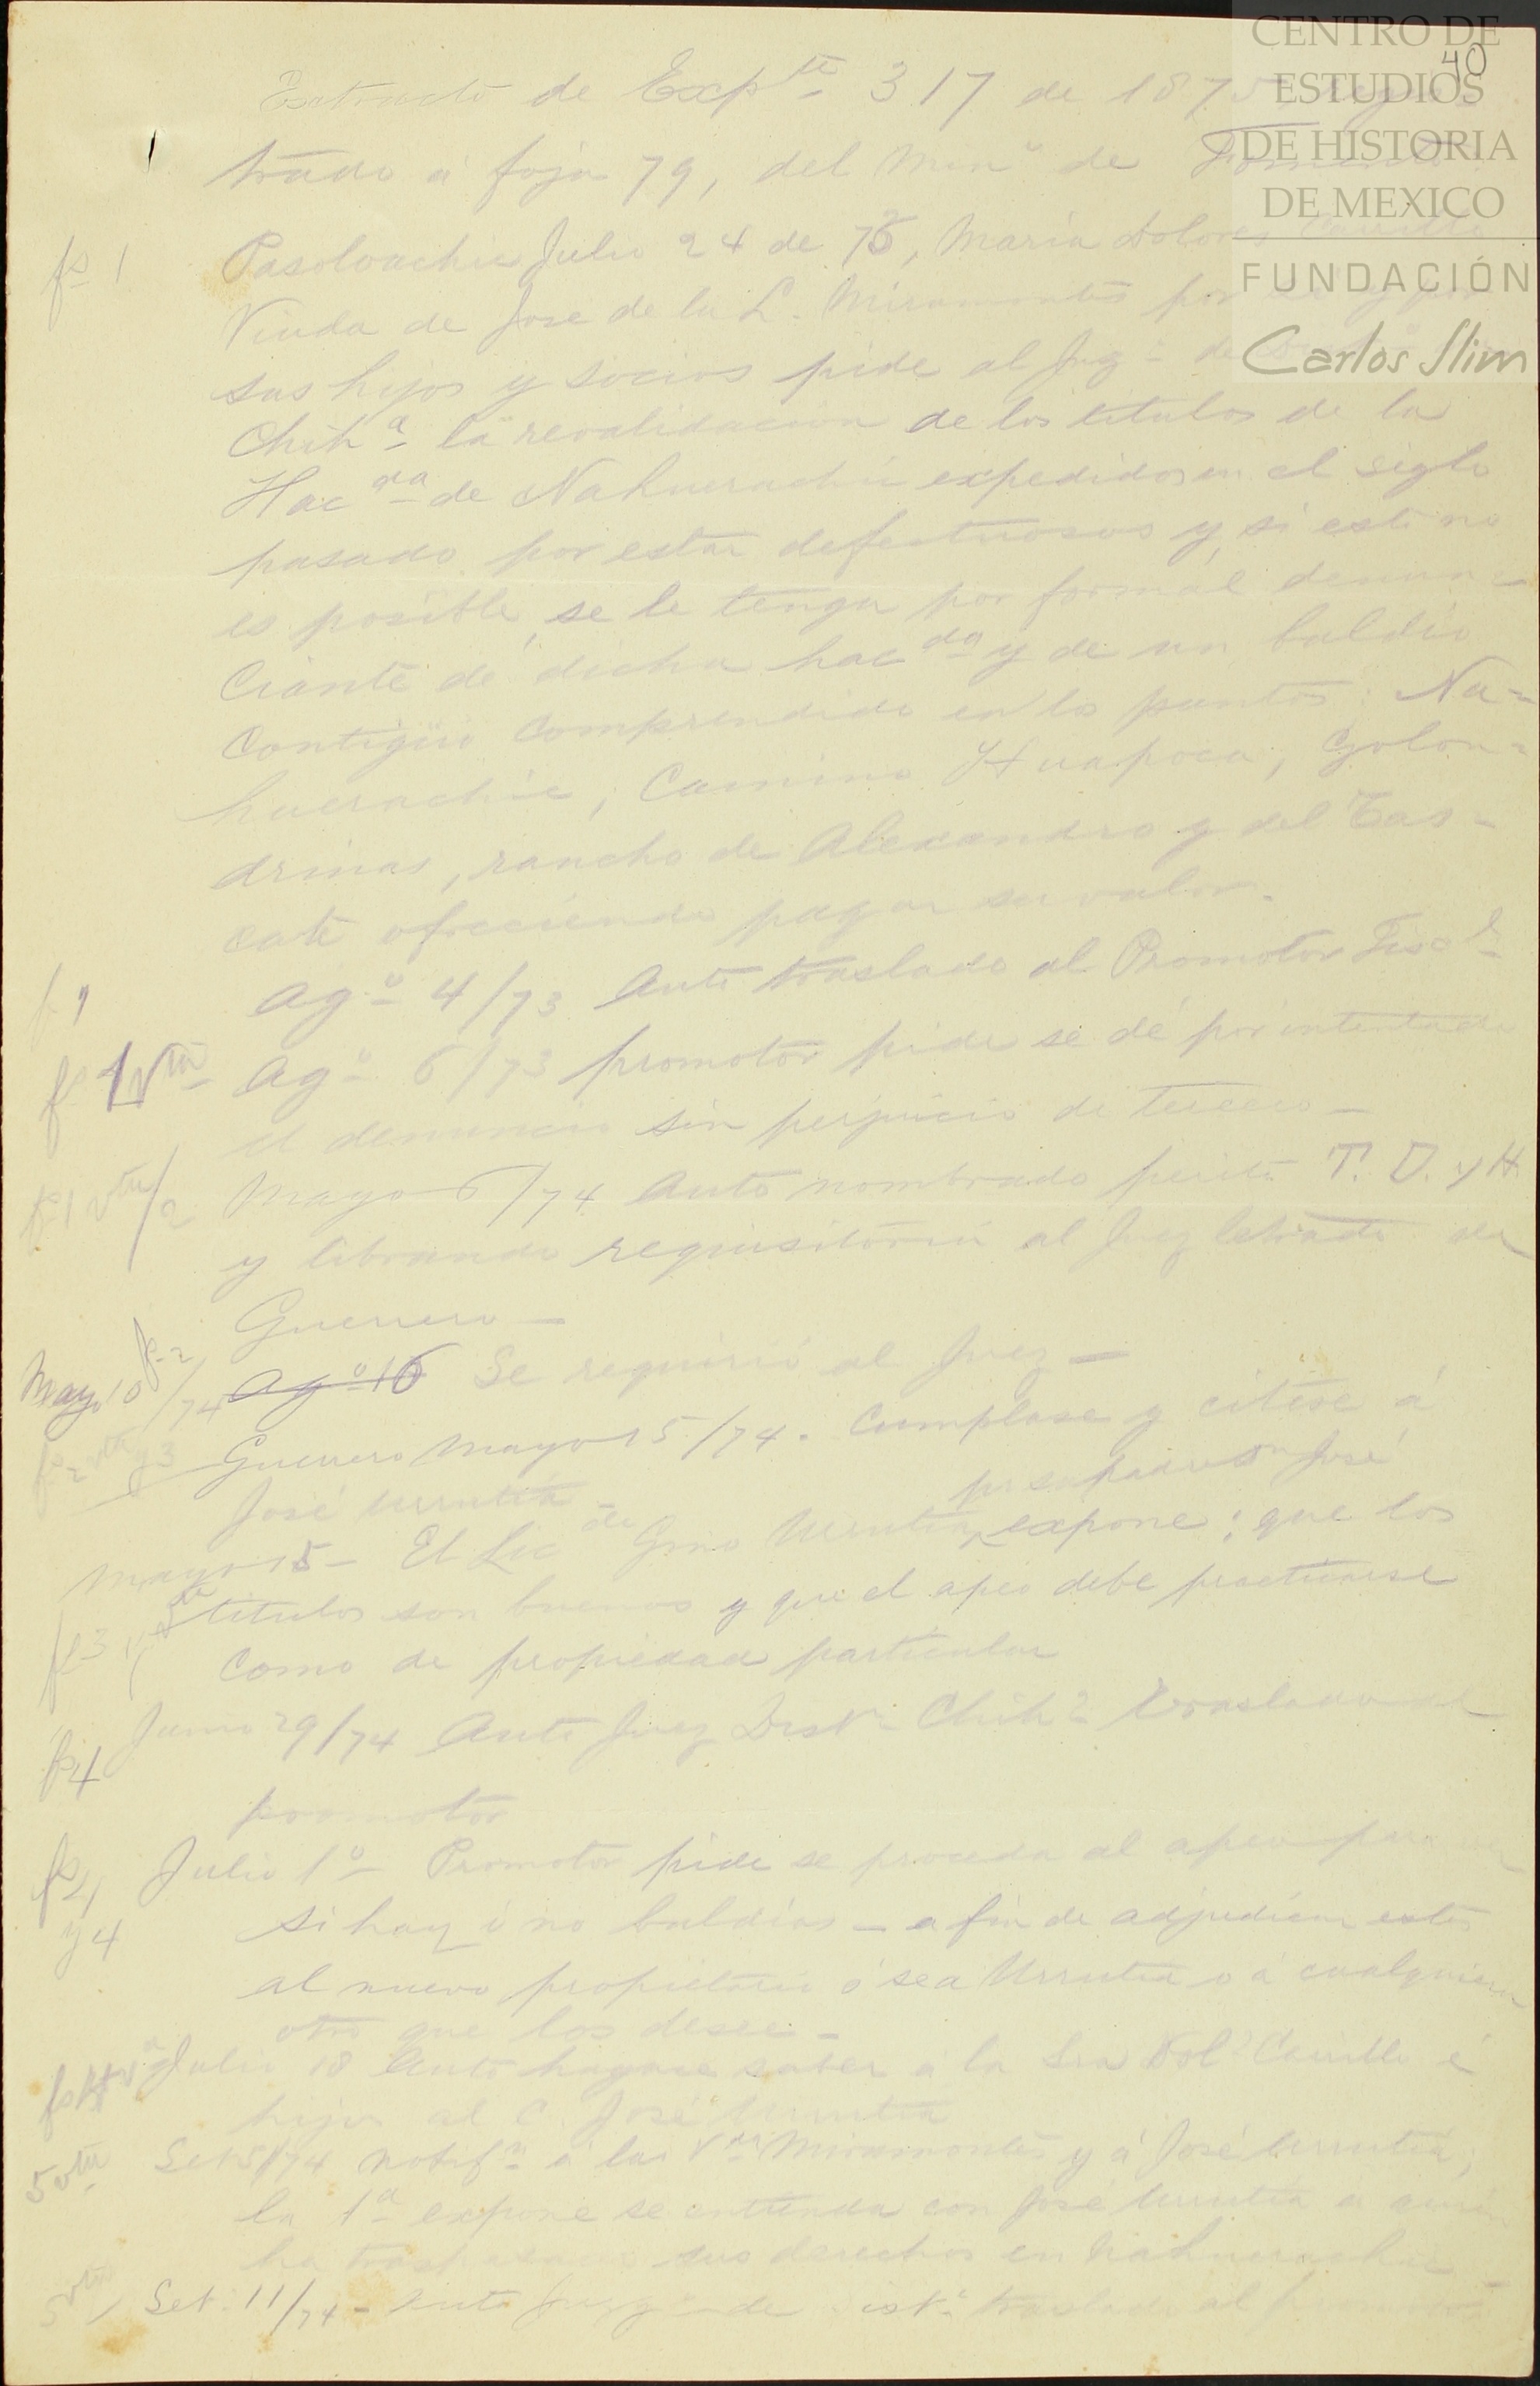 CENTRO DE
ESTUDIOS
DE HISTORIA
DE MEXICO
FUNDACIÓN
Carlos Slim
40
Extracto de Exp.te 317 de 1875, regis-
trado á foja 79, del Min.o de Fomento
fs 1 Pasolvachic Julio 24 de 73, María Dolores Carrillo
Viuda de José de la L. Miramontes por sí y por
sus hijos y socios pide al Juz.o de
Chih.a la revalidacion de los titulos de la
Hac.da de Nahuerachic expedidos en el siglo
pasado por estar defectuosos y si esto no
es posible, se le tenga por formal denun-
ciante de dicha hac.da y de un baldio
contiguo comprendido en los puntos: Na-
huerachic, Camino Huapoca, Golon-
drinas, rancho de Alexandro y del Tas-
cate ofreciendo pagar su valor.
f. 1 Ag.o 4/73 Auto traslado al Promotor Fisc.l
fs 1 vta Ag.o 6/73 promotor pide se dé por intentado
el denuncio sin perjuicio de tercero—
fs 1 vta/2 Mayo 6/74 Auto nombrado perito T. O. y H.
y librando requisitoria al Juez letrado de
Guerrero—
fs 2
Mayo 10/74 Ag.o 16 Se requirió al Juez—
fs 2 vta y 3 Guerrero Mayo 15/74. Cumplase y citese á
José Urrutia—
por su padre Dn José
Mayo 15— El Lic.do Gmo Urrutia, expone: que los
fs 3 vta titulos son buenos y que el apeo debe practicarse
como de propiedad particular
fs 4 Junio 29/74 Auto Juez Dist.o Chih.a traslado al
promotor
fs 4 y 4 Julio 1o— Promotor pide se proceda al apeo para
si hay ó no baldios— a fin de adjudicar estos
al nuevo propietario ó sea Urrutia o á cualquiera
otro que los desee—
fs 4 va Julio 18 Auto hagase saber á la Sra Dol.s Carrillo é
hijos al C. José Urrutia
5 vta Set 5/74 Notif.n á la Vda Miramontes y á José Urrutia;
la 1a expone se entienda con José Urrutia á quien
ha traspasado sus derechos en Nahuerachic—
5 vta Set. 11/74— Auto Juzg.o de Dist.o traslado al promotor